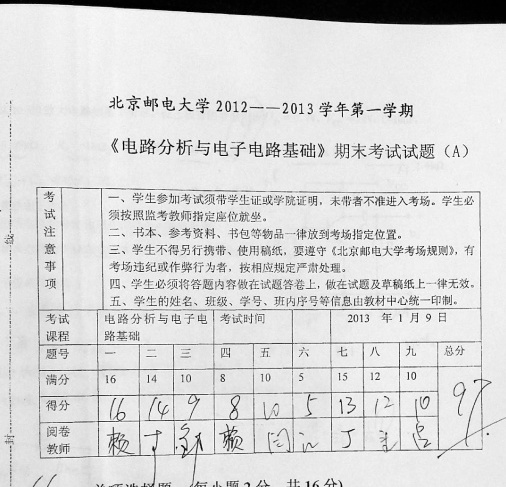 北京邮电大学 2012——2013 学年第一学期
《电路分析与电子电路基础》期末考试试题（A）
考试注意事项
一、学生参加考试须带学生证或学院证明，未带者不准进入考场。学生必
须按照监考教师指定座位就坐。
二、书本、参考资料、书包等物品一律放到考场指定位置。
三、学生不得另行携带、使用稿纸，要遵守《北京邮电大学考场规则》，有
考场违纪或作弊行为者，按相应规定严肃处理。
四、学生必须将答题内容做在试题答卷上，做在试题及草稿纸上一律无效。
五、学生的姓名、班级、学号、班内序号等信息由教材中心统一印制。
考试课程 电路分析与电子电路基础 考试时间 2013 年 1 月 9 日
题号 一 二 三 四 五 六 七 八 九 总分
满分 16 14 10 8 10 5 15 12 10
得分 16 14 9 8 10 5 13 12 10 97
阅卷教师 赖 赖 闫 丁 吕
单项选择题 (每小题 2 分，共 16 分)